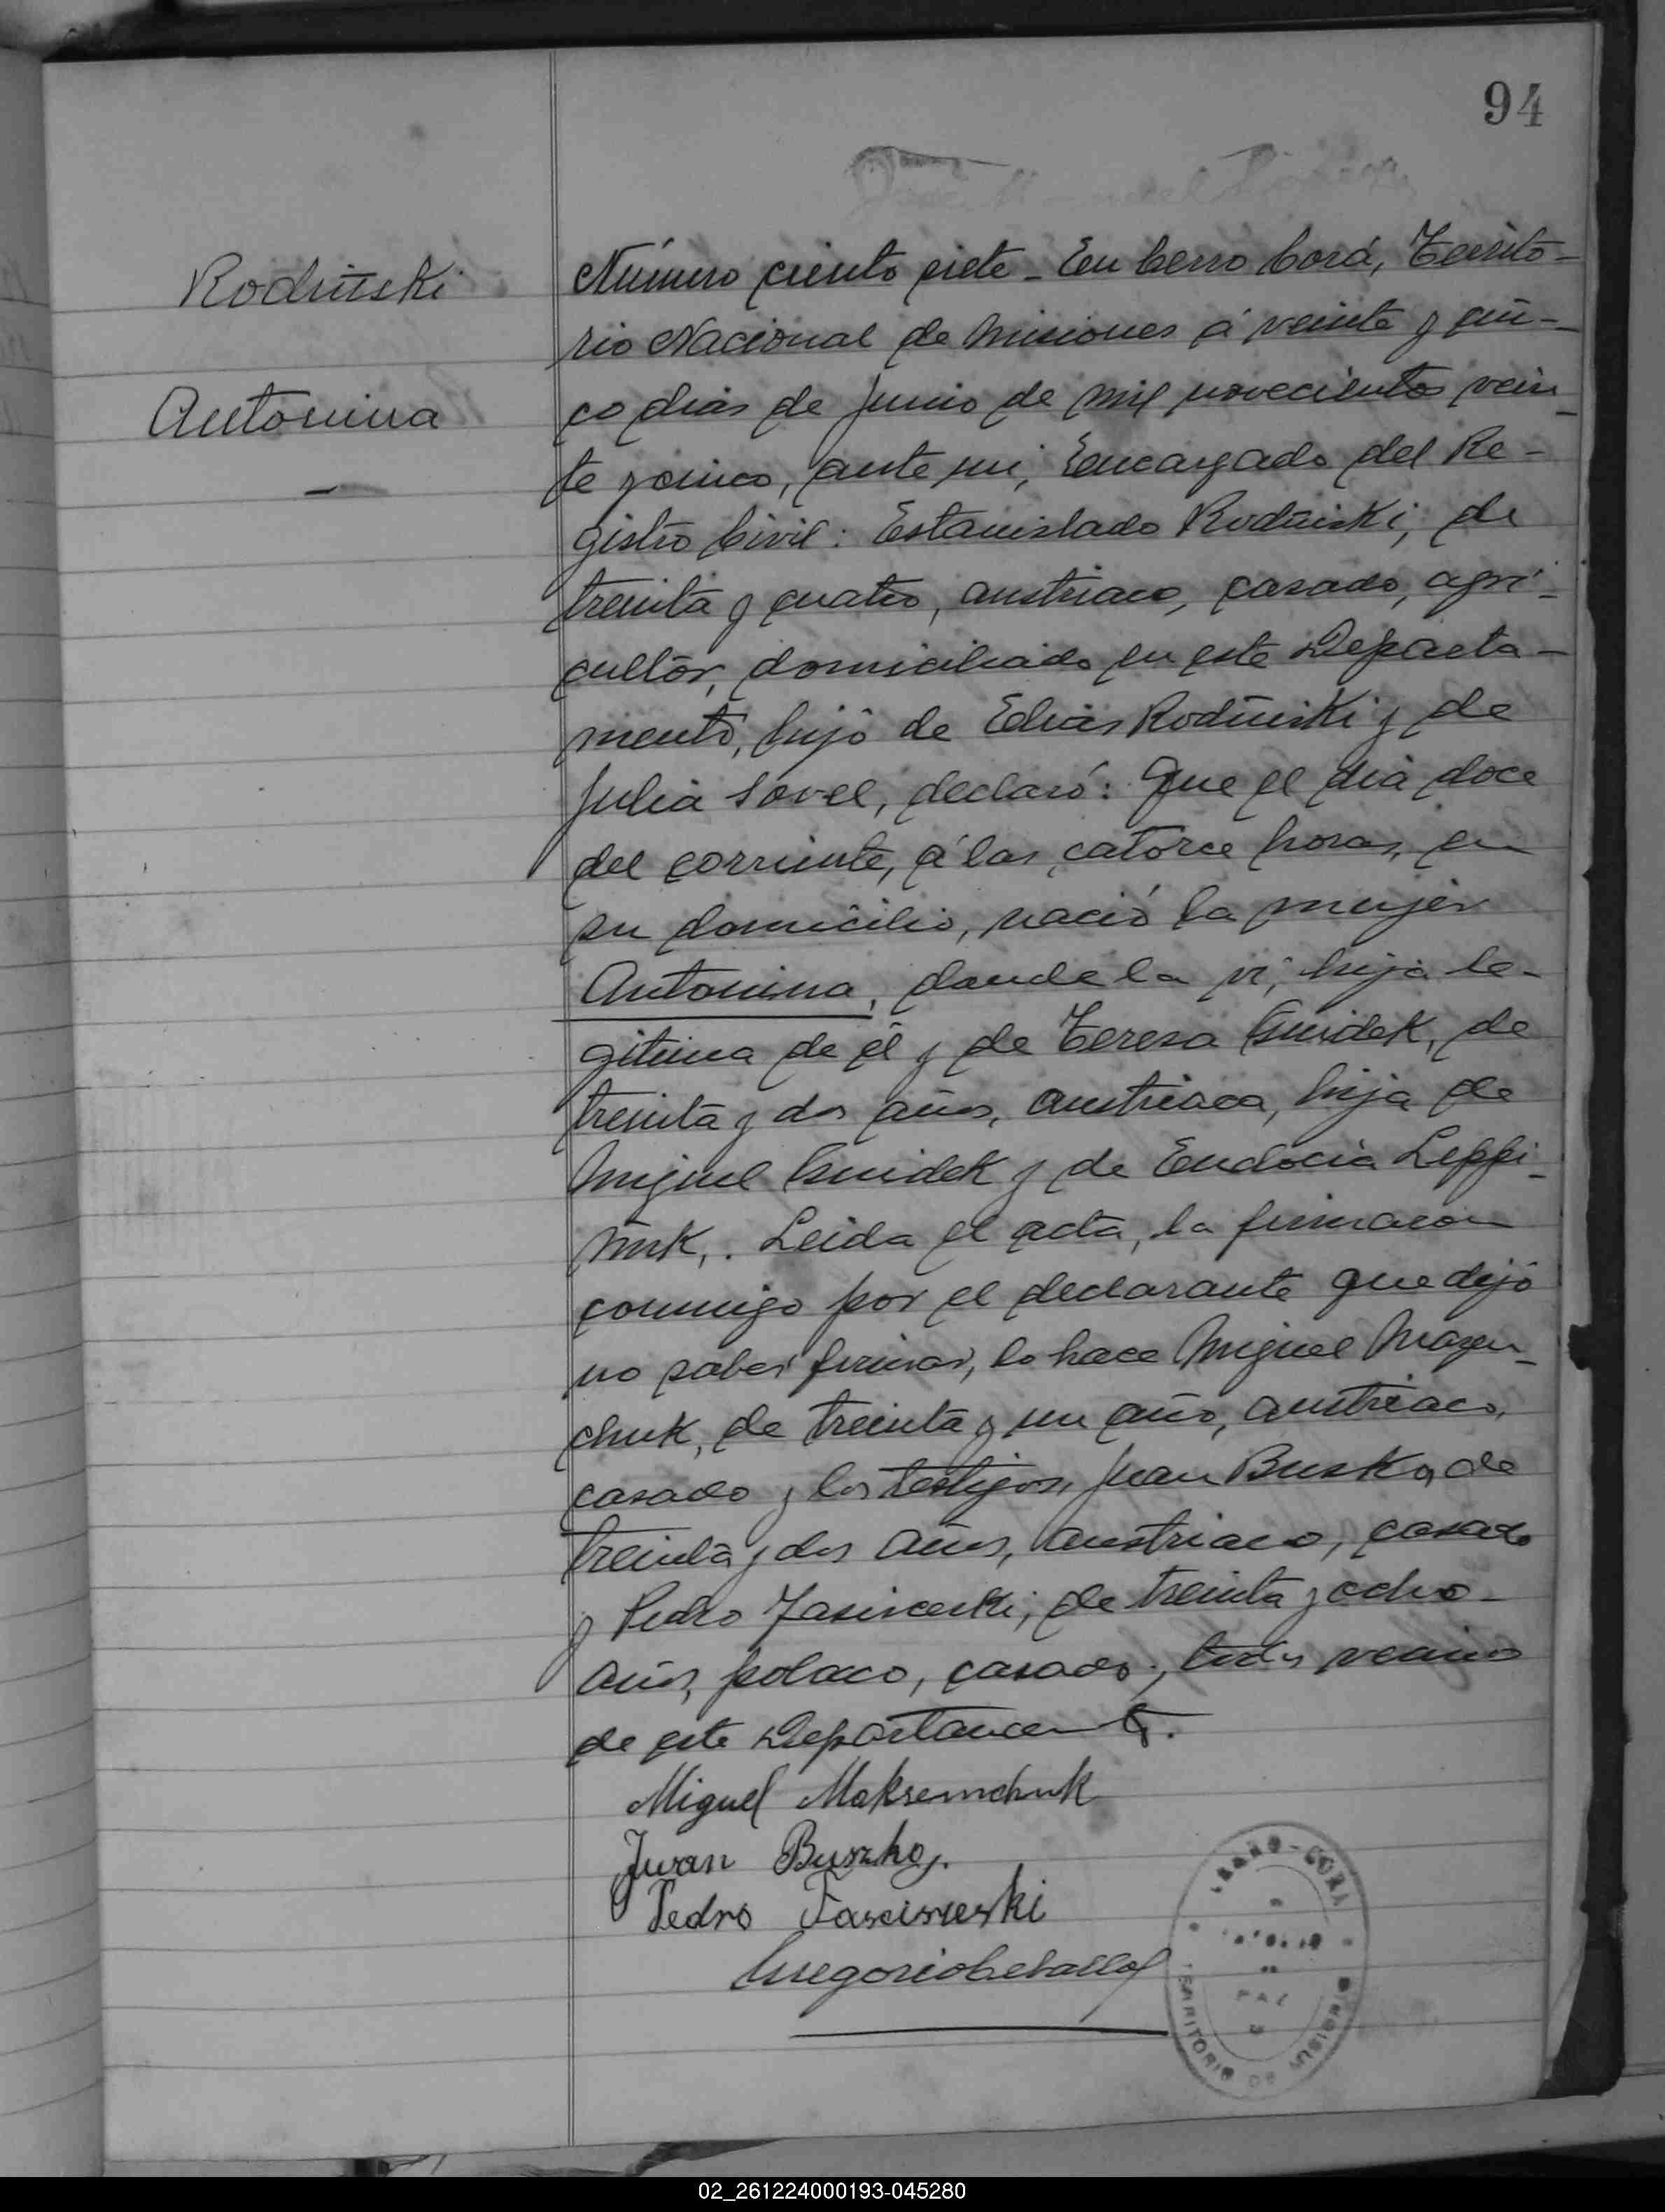 94
Rodüiski
Antonina
Número ciento siete - En Cerro Corá, Territo-
rio Nacional de Misiones á veinte y cin-
co dias de Junio de mil novecientos vein-
te y cinco, ante mi, Encargado del Re-
gistro Civil: Estanislado Rodüiski, de
treinta y cuatro, austriaco, casado, agri-
cultor, domiciliado en este Departa-
mento, hijo de Elias Rodüiski y de
Julia Sovel, declaró: Que el dia doce
del corriente, á las catorce horas, en
su domicilio, nació la mujer
Antonina, donde la vi, hija le-
gitima de él y de Teresa Guidek, de
treinta y dos años, austriaca, hija de
Miguel Guidek y de Eudocia Leppi-
niuk,. Leida el acta, la firmaron
conmigo por el declarante que dijó
no saber firmar, lo hace Miguel Mazen-
chuk, de treinta y un año, austriaco,
casado y los testigos, Juan Busko, de
treinta y dos años, austriaco, casado
y Pedro de treinta y ocho
años, polaco, casado; todos vecinos
de este Departamento.
Miguel Maksemchuk
Juan Buszko
Pedro
Gregorio Ceballos
CERRO-CORA
PAZ
TERRITORIO DE MISIONES
02_261224000193-045280